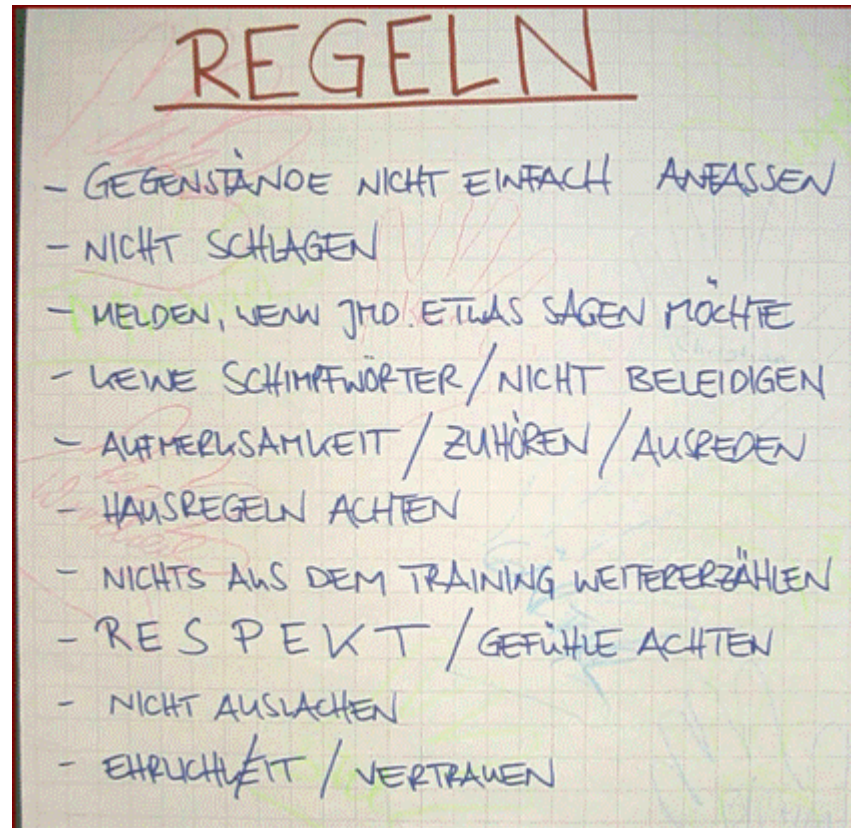 REGELN
- GEGENSTÄNDE NICHT EINFACH ANFASSEN
- NICHT SCHLAGEN
- MELDEN, WENN JMD. ETWAS SAGEN MÖCHTE
- KEINE SCHIMPFWÖRTER / NICHT BELEIDIGEN
- AUFMERKSAMKEIT / ZUHÖREN / AUSREDEN
- HAUSREGELN ACHTEN
- NICHTS AUS DEM TRAINING WEITERERZÄHLEN
- RESPEKT / GEFÜHLE ACHTEN
- NICHT AUSLACHEN
- EHRLICHKEIT / VERTRAUEN